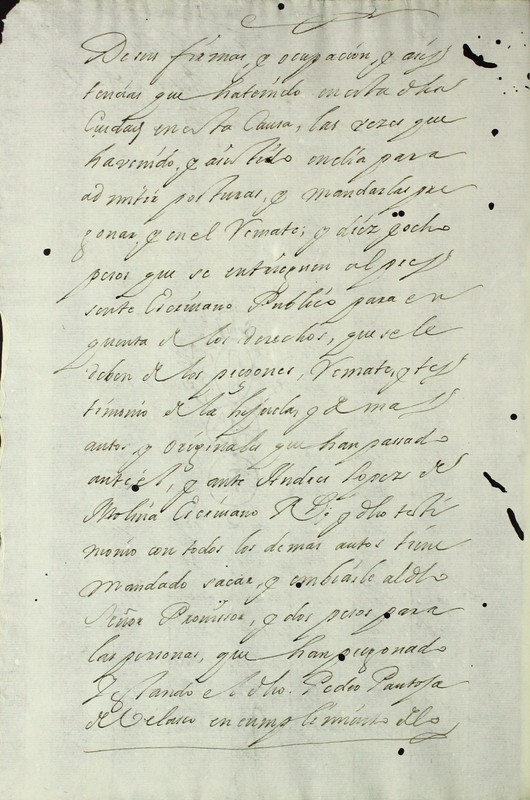 De sus firmas, y ocupación, y asis
tencias que ha tenido en esta dha
Ciudad en esta Causa, las vezes que
ha venido, y asistido en ella para
admitir posturas, y mandarlas pre
gonar, y en el Remate; y diez y ocho
pesos que se entrieguen al pre
sente Escrivano Publico para en
quenta de los derechos, que se le
deben de los pregones, Remate, y tes
timonio de la hijuela, y demas
autos y originales que han passado
ante él, y ante Andres Lopez de
Molina Escrivano R.l; y dho testi
monio con todos los demas autos tiene
mandado sacar, y embiarle al dho
Señor Provissor, y dos pesos para
las personas, que han pregonado
Y estando el dho. Pedro Pantoja
de Velasco en cumplimiento dello